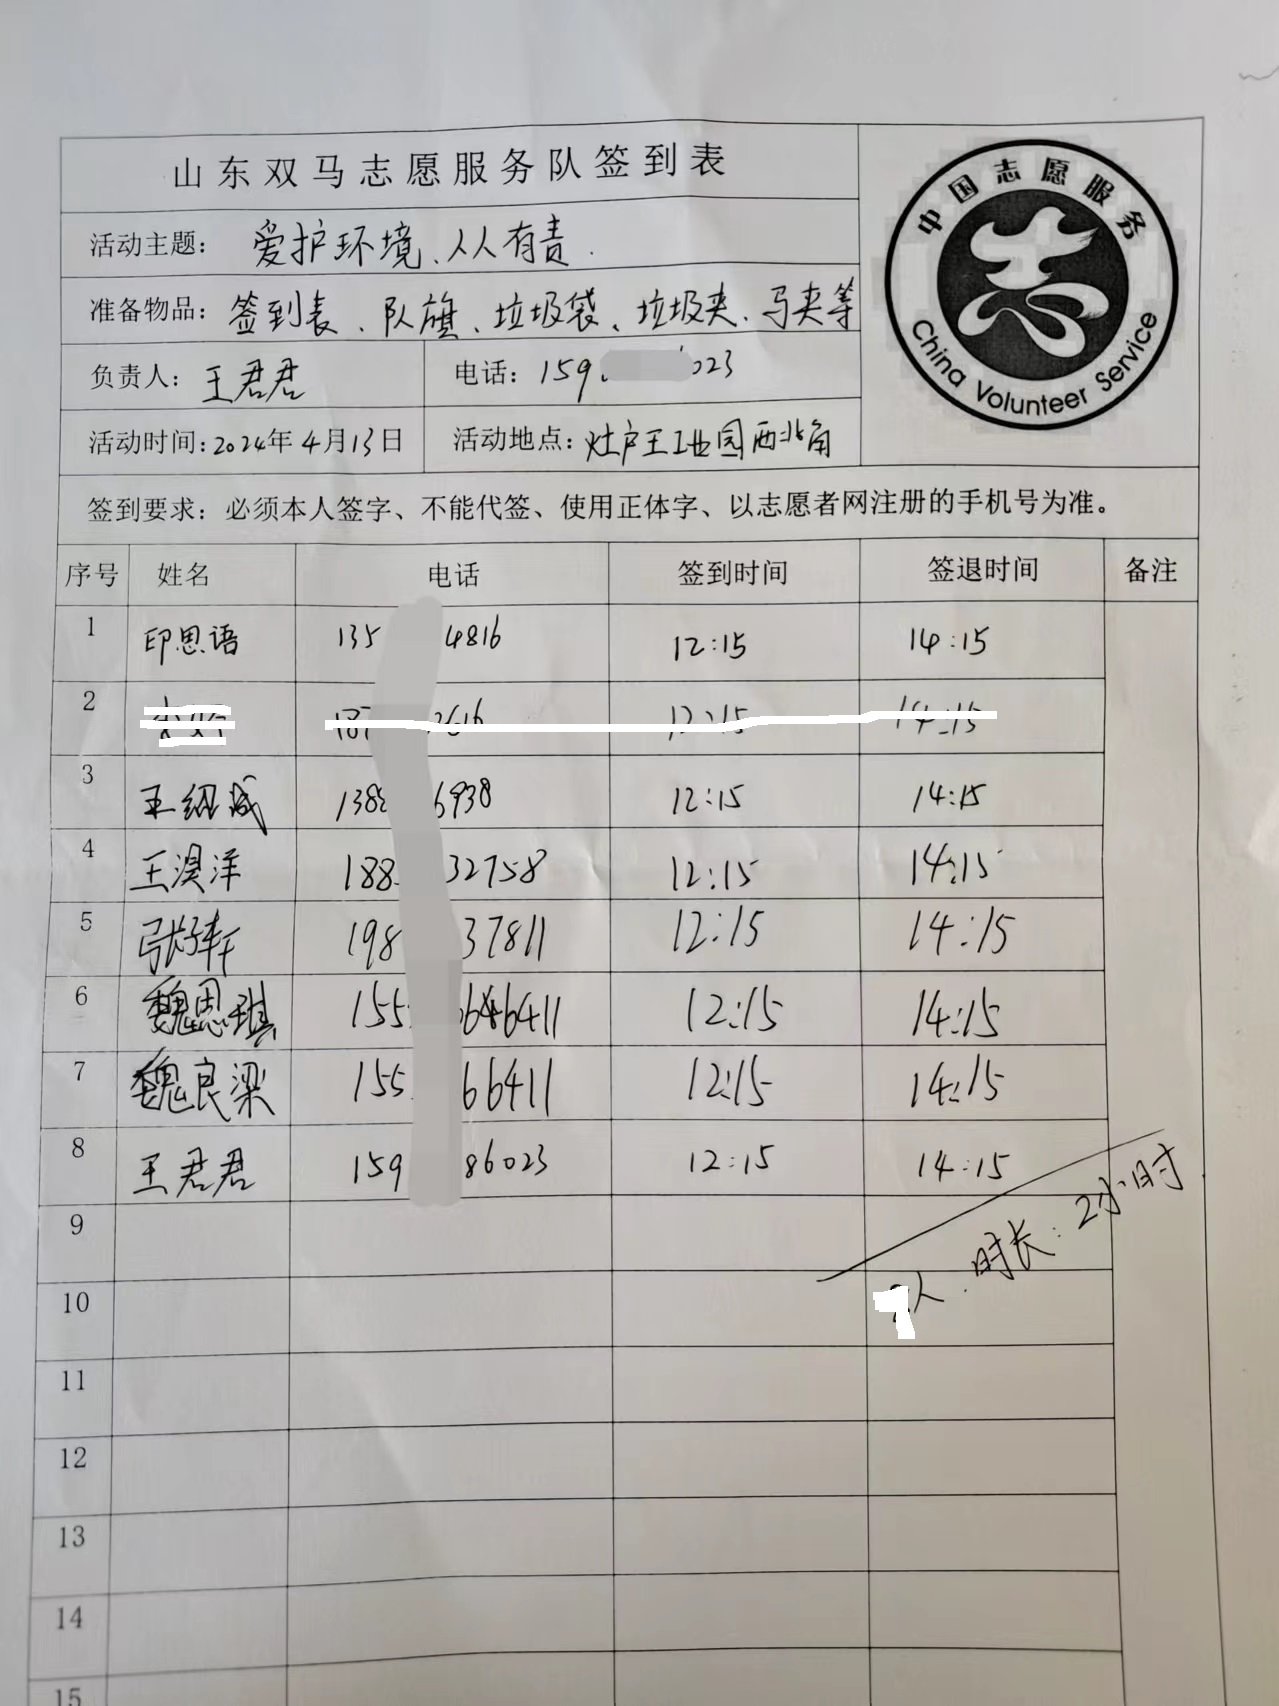 山东双马志愿服务队签到表
中国志愿服务
China Volunteer Service
活动主题：爱护环境、人人有责.
准备物品：签到表、队旗、垃圾袋、垃圾夹、马夹等
负责人：王君君 电话：159 023
活动时间：2024年4月13日 活动地点：灶户王工业园西北角
签到要求：必须本人签字、不能代签、使用正体字、以志愿者网注册的手机号为准。
序号 姓名 电话 签到时间 签退时间 备注
1 印思语 135 4816 12:15 14:15
2 187 2616 12:15 14:15
3 王绍成 138 6938 12:15 14:15
4 王淏洋 188 32758 12:15 14:15
5 198 37811 12:15 14:15
6 魏思琪 155 646411 12:15 14:15
7 魏良梁 155 66411 12:15 14:15
8 王君君 159 86023 12:15 14:15
9
10 人.时长：2小时
11
12
13
14
15